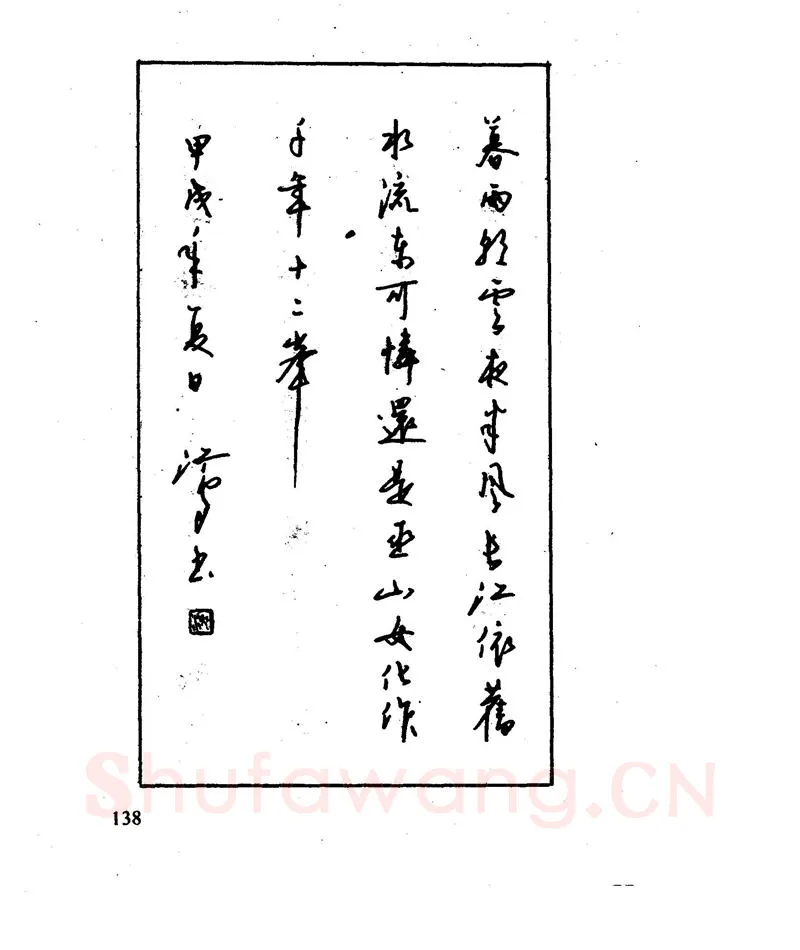 暮雨朝雲夜半風長江依舊
水流東可憐還是巫山女化作
千年十二峯
甲戌年夏日 書
138
Shufawang.CN